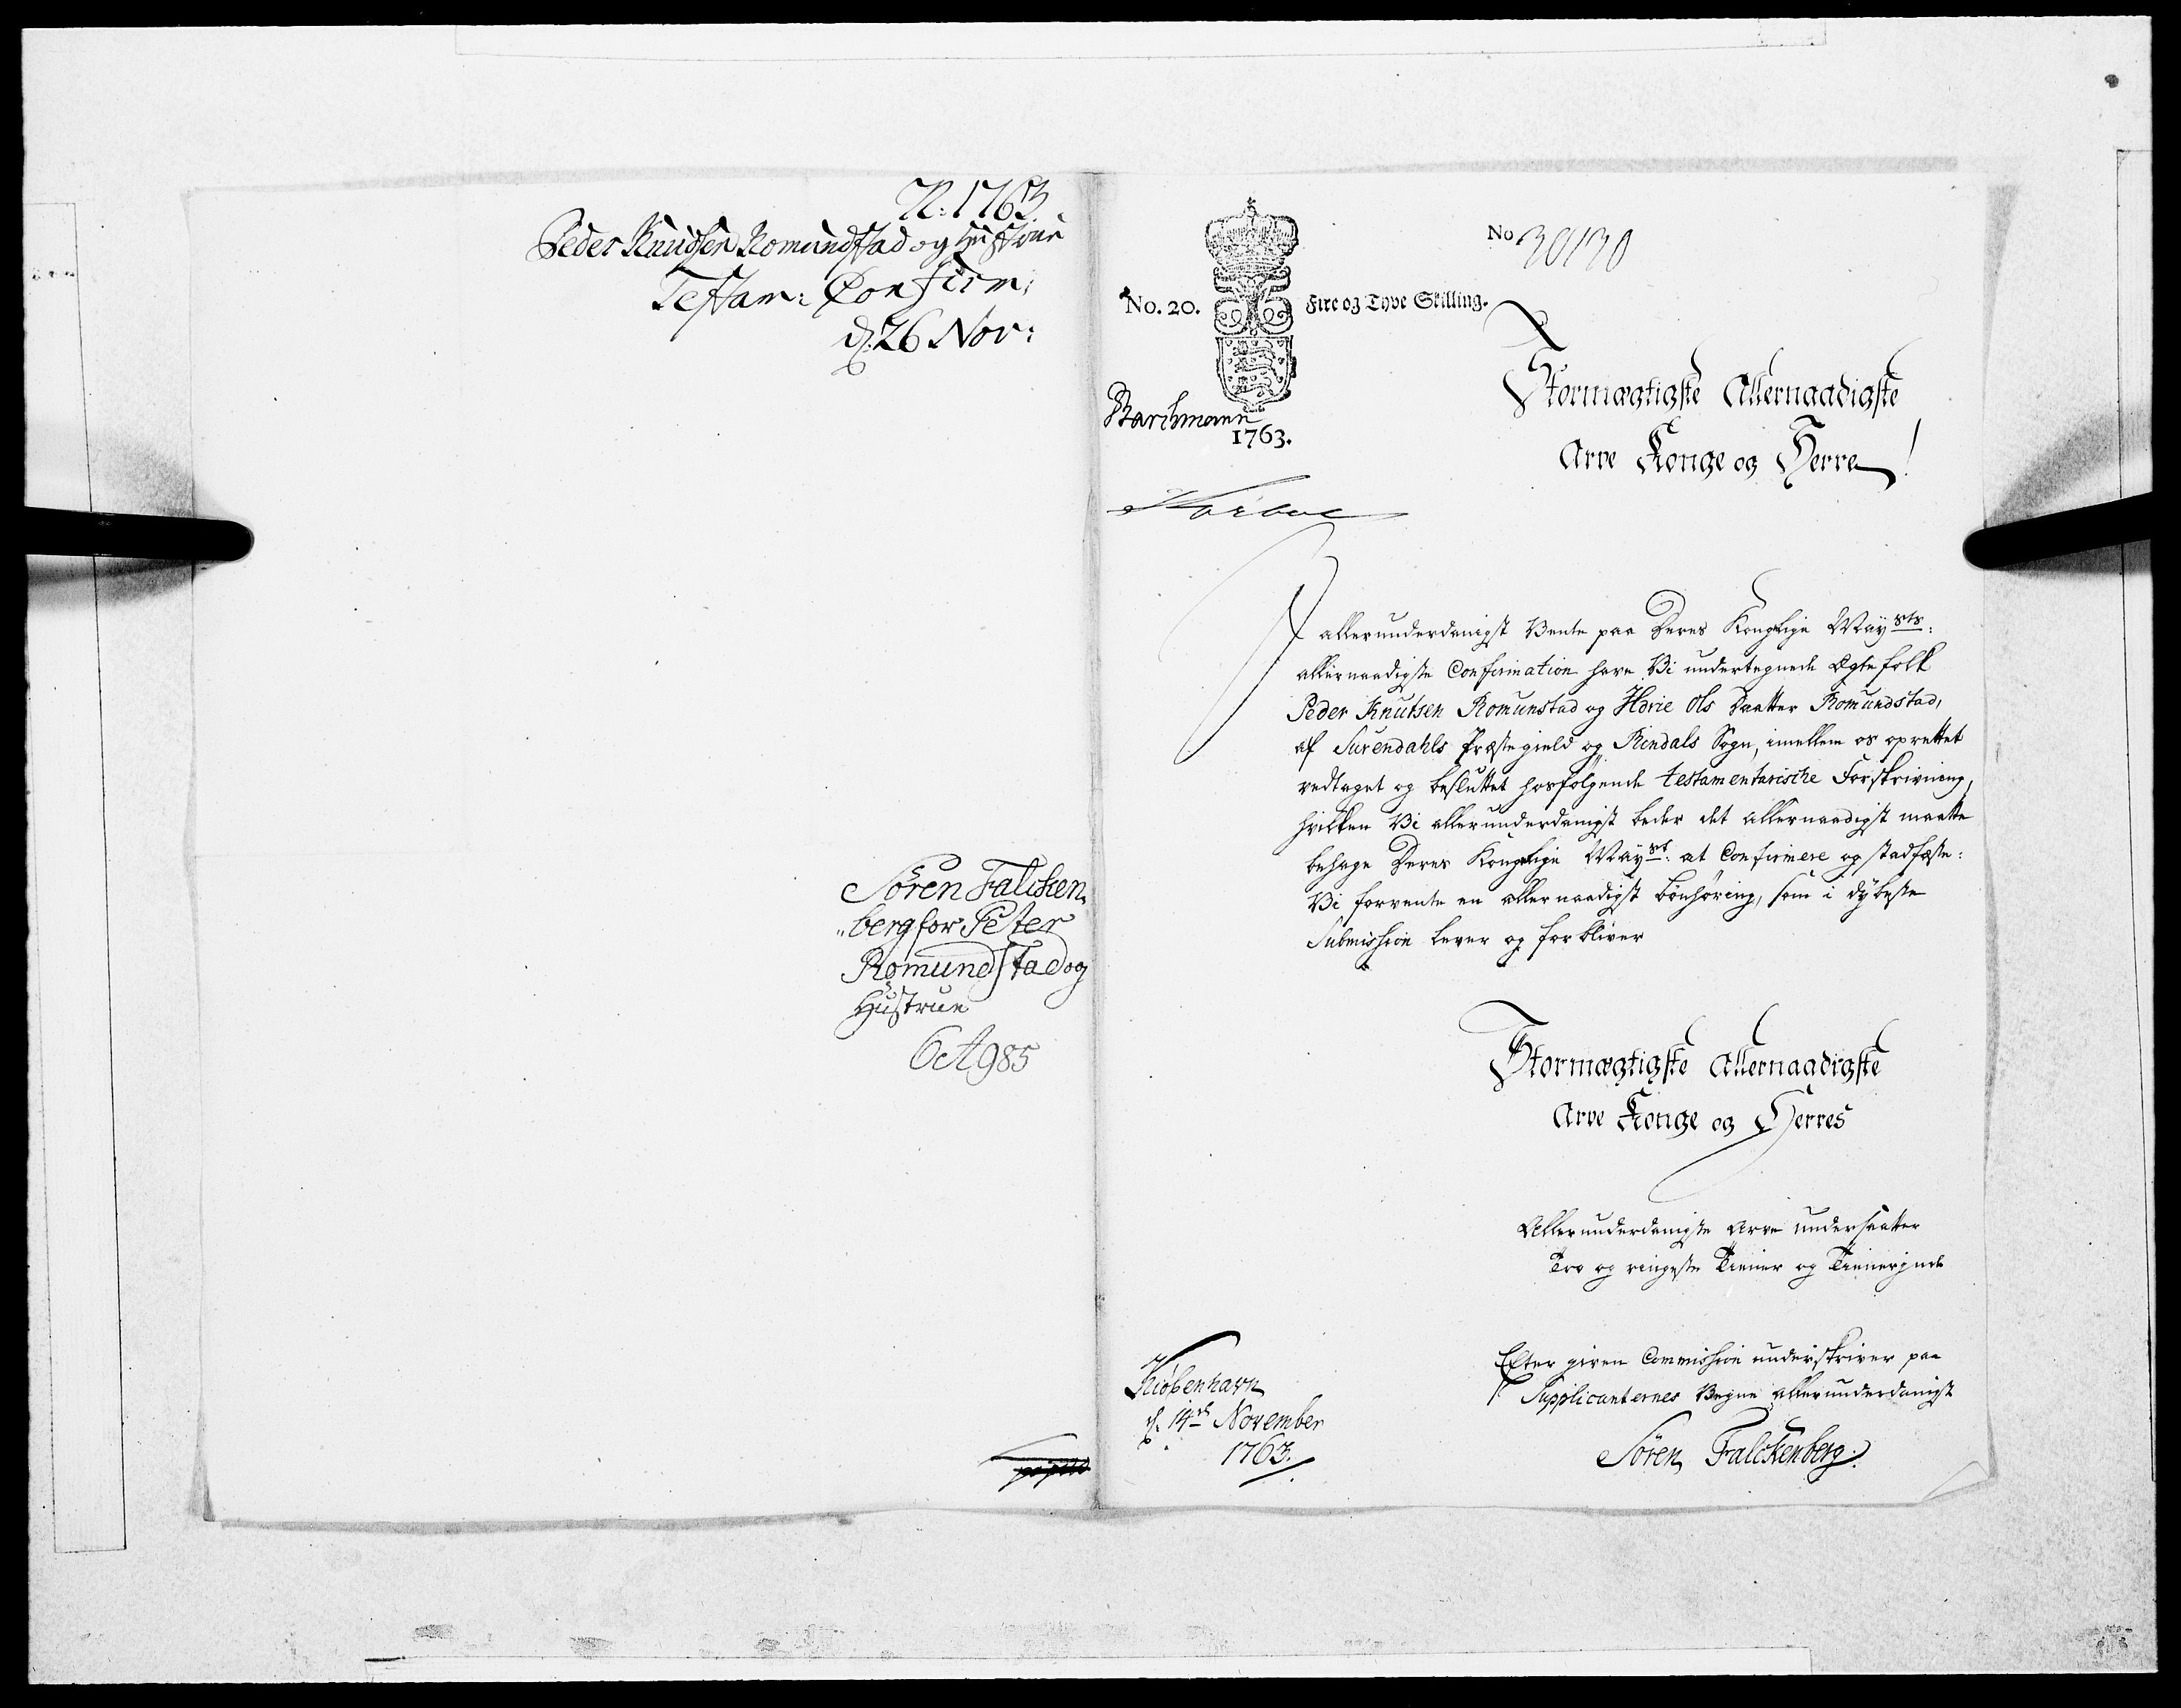 N: 1763.
Peder Knudsen Romundstad og Hustrue
Testam: Confirm:
d. 26 Nov:
Sören Falcken
"berg for Peter
Romundstad og
Hustrue
6A985
No. 20.
Fire og Tyve Skilling.
No 30130
Barchmann
1763.
Stormægtigste Allernaadigste
Arve Konge og Herre!
I allerunderdanigst Vente paa Deres Kongelige Maysts:
allernaadigste Confirmation have Vi undertegnede Ægtefolk
Peder Knutsen Romunstad og Ols Daatter Romundstad,
af Surendahls Præstegield og Rindals Sogn, imellem os oprettet
vedtaget og besluttet hosfölgende testamentarische Forskrivning,
hvilken Vi allerunderdanigst beder det allernaadigst maatte
behage Deres Kongelige Mayst: at Confirmere og stadfæste:
Vi forvente en allernaadigst bönhöring, som i dÿbeste
Submission lever og forbliver
Stormægtigste Allernaadigste
Arve Konge og Herres
Allerunderdanigste Arve undersaatter
Tro og ringeste Tiener og
Kiöbenhavn
d. 14de November
1763.
Efter given Commission underskriver paa
Supplicanternes Vegne allerunderdanigst
Sören Falckenberg.